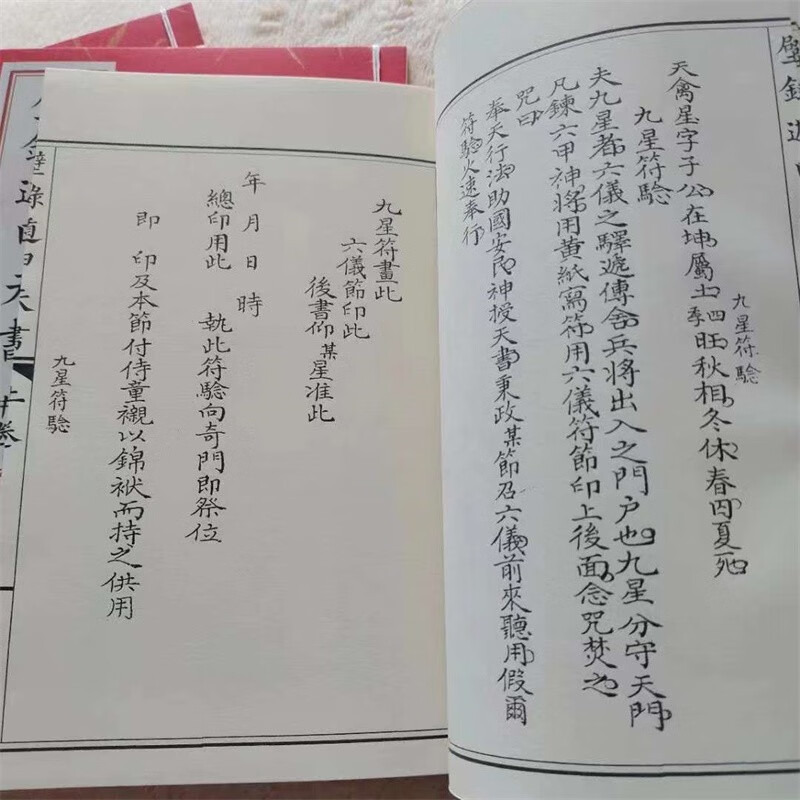 壁錄遁
九星符驗
天禽星字子公在坤屬土四季旺秋相冬休春囚夏死
九星符驗
夫九星者六儀之驛遞傳舍兵將出入之門户也九星分守天門
凡鍊六甲神將用黄紙寫符用六儀符節印上後面念咒焚之
咒曰
奉天行法助國安民神授天書秉政某節召六儀前來聽用假爾
符驗火速奉行
九星符畫此
六儀節印此
後書仰某星准此
年月日時
執此符驗向奇門即祭位
總印用此
即 印及本節付侍童襯以錦袱而持之供用
九星符驗
金壁錄
天書
卷